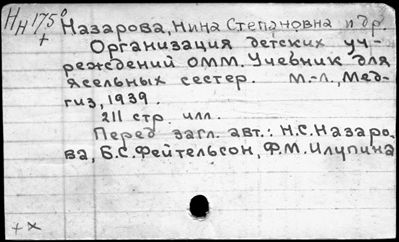 Нн 175° Назарова, Нина Степановна и др.
+ Организация детских уч-
реждений ОММ. Учебник для
ясельных сестер. М.-Л., Мед-
гиз, 1939.
211 стр. илл.
Перед загл. авт.: Н.С. Назаро-
ва, Б.С. Фейтельсон, Ф.М. Илупина
+ х